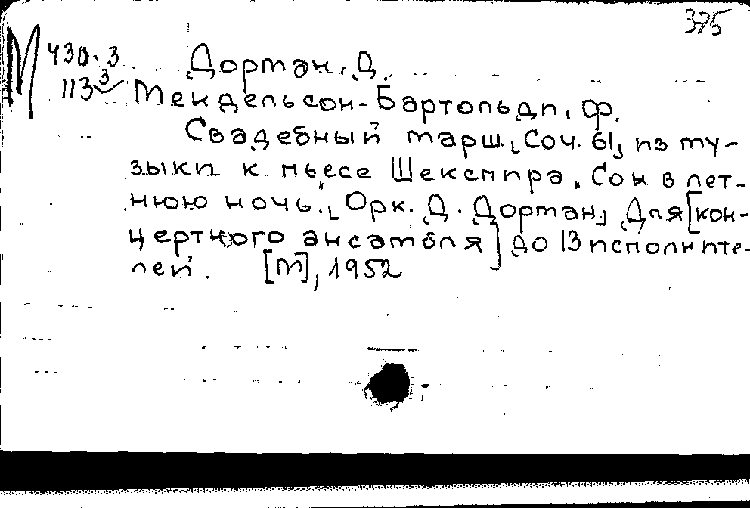 375
М 430.3 Дорман, Д.
113³ Мендельсон-Бартольди, Ф.
Свадебный марш, Соч. 61, из му-
зыки к пьесе Шекспира „Сон в лет-
нюю ночь". Орк. Д. Дорман, Для [кон-
цертного ансамбля] до 13 исполните-
лей. [М], 1952